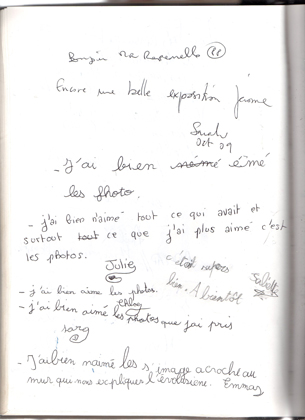 Encore une belle exposition Jérome
Sarah
Oct 09
- J'ai bien ẽmé
les photo.
- j'ai bien n'aimé tout ce qui avait et
surtout tout ce que j'ai plus aimé c'est
les photos.
Julie
c'était
bien. A bientôt
- j'ai bien aimé les photos.
Chloé
- j'ai bien aimé les photos que j'ai pris
sarg
- J'ai bien n'aimé les s'image acroche au
mur que nous expliques l'évolusione. Emma